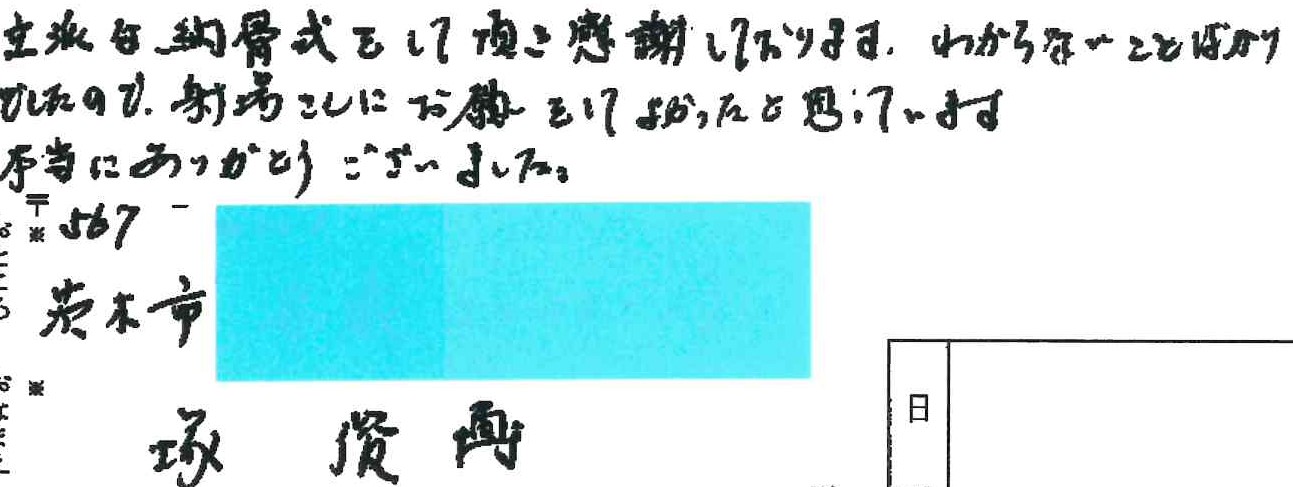 立派な納骨式をして頂き感謝しております. わからないことばかり
でしたので. 射場さんにお願をしてよかったと思っています
本当にありがとうございました。
〒567-
※
茨木市
※
塚 俊
日